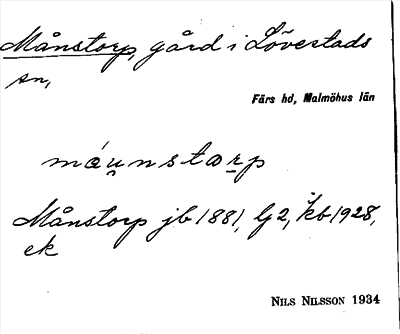 Månstorp, gård i Lövestads
sn,
Färs hd, Malmöhus län
máu̯nstɑr̠p
Månstorp jb 1881, G2, kb 1928,
ek
NILS NILSSON 1934